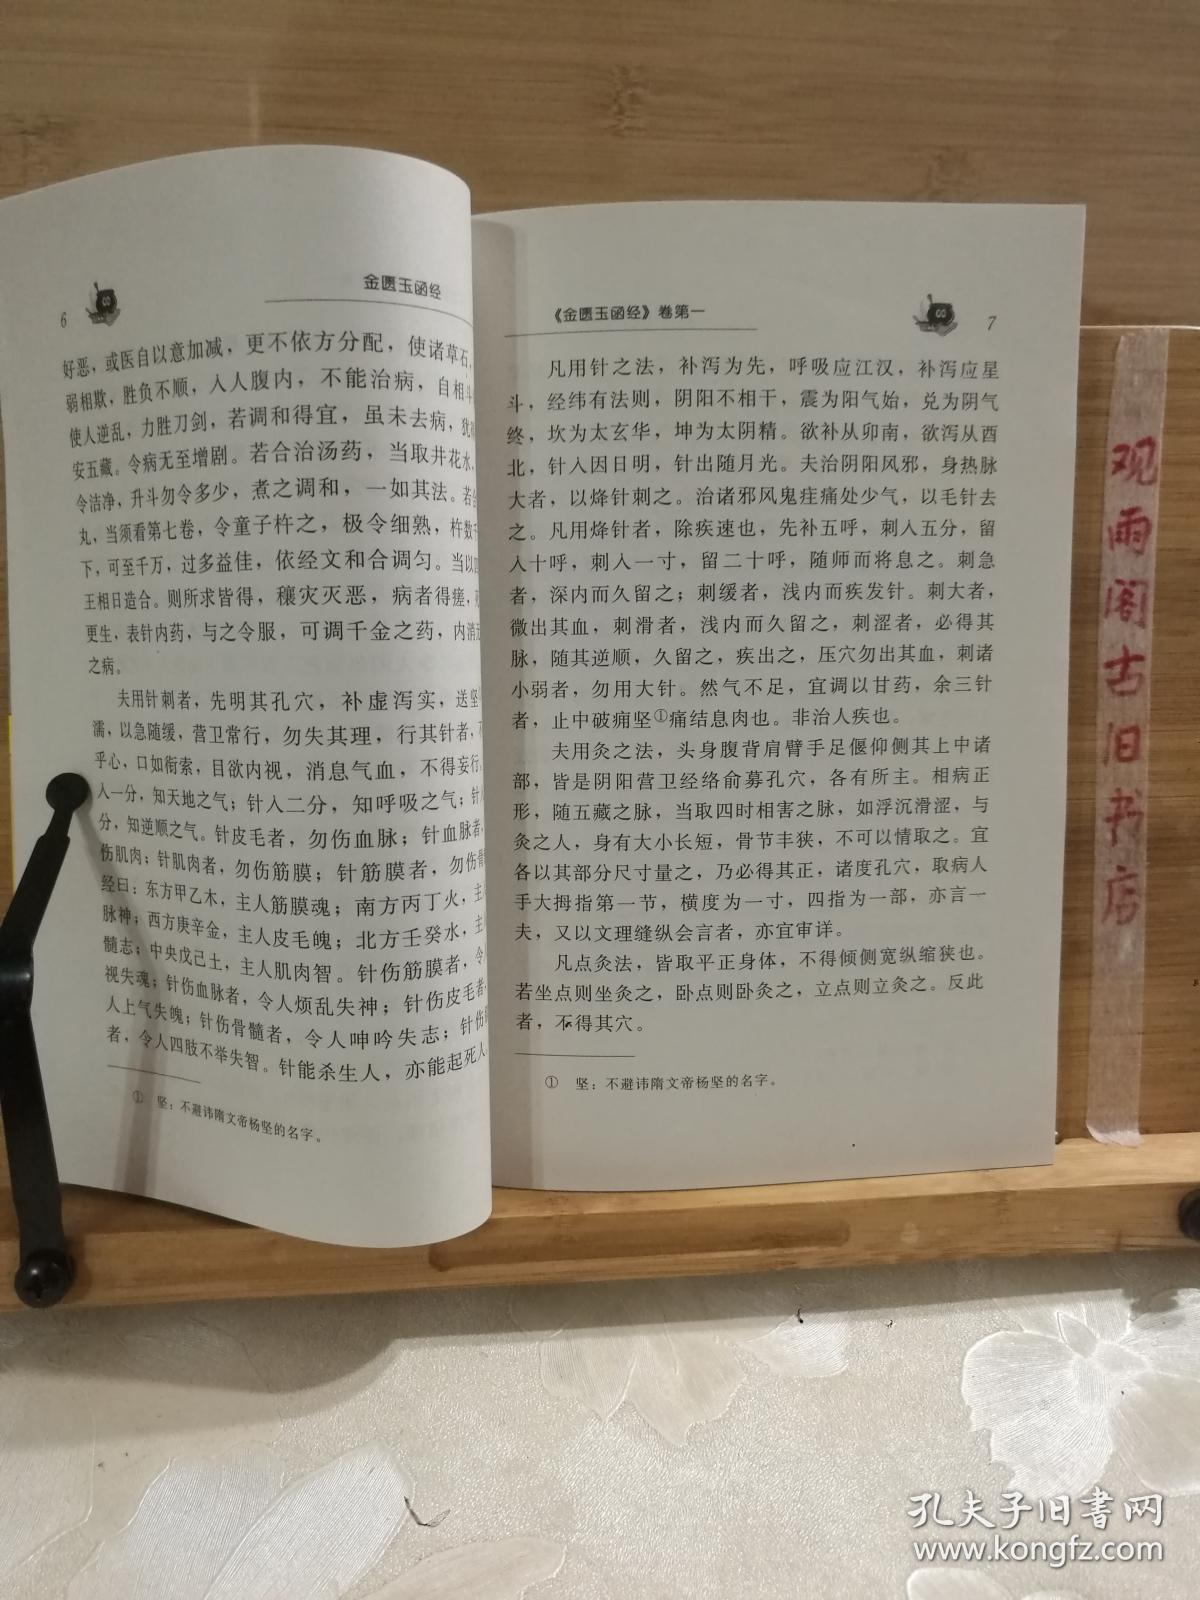 金匮玉函经
6
好恶，或医自以意加减，更不依方分配，使诸草石，
弱相欺，胜负不顺，入人腹内，不能治病，自相斗
使人逆乱，力胜刀剑，若调和得宜，虽未去病，犹
安五藏。令病无至增剧。若合治汤药，当取井花水，
令洁净，升斗勿令多少，煮之调和，一如其法。若
丸，当须看第七卷，令童子杵之，极令细熟，杵数千
下，可至千万，过多益佳，依经文和合调匀。当以四
王相日造合。则所求皆得，穰灾灭恶，病者得瘥，
更生，表针内药，与之令服，可调千金之药，内消无
之病。
夫用针刺者，先明其孔穴，补虚泻实，送坚
濡，以急随缓，营卫常行，勿失其理，行其针者，不
乎心，口如衔索，目欲内视，消息气血，不得妄行。
入一分，知天地之气；针入二分，知呼吸之气；针入
分，知逆顺之气。针皮毛者，勿伤血脉；针血脉者，
伤肌肉；针肌肉者，勿伤筋膜；针筋膜者，勿伤骨
经曰：东方甲乙木，主人筋膜魂；南方丙丁火，主
脉神；西方庚辛金，主人皮毛魄；北方壬癸水，主
髓志；中央戊己土，主人肌肉智。针伤筋膜者，令
视失魂；针伤血脉者，令人烦乱失神；针伤皮毛者，
人上气失魄；针伤骨髓者，令人呻吟失志；针伤
者，令人四肢不举失智。针能杀生人，亦能起死人
① 坚：不避讳隋文帝杨坚的名字。
《金匮玉函经》卷第一
7
凡用针之法，补泻为先，呼吸应江汉，补泻应星
斗，经纬有法则，阴阳不相干，震为阳气始，兑为阴气
终，坎为太玄华，坤为太阴精。欲补从卯南，欲泻从酉
北，针入因日明，针出随月光。夫治阴阳风邪，身热脉
大者，以烽针刺之。治诸邪风鬼疰痛处少气，以毛针去
之。凡用烽针者，除疾速也，先补五呼，刺入五分，留
入十呼，刺入一寸，留二十呼，随师而将息之。刺急
者，深内而久留之；刺缓者，浅内而疾发针。刺大者，
微出其血，刺滑者，浅内而久留之，刺涩者，必得其
脉，随其逆顺，久留之，疾出之，压穴勿出其血，刺诸
小弱者，勿用大针。然气不足，宜调以甘药，余三针
者，止中破痈坚①痛结息肉也。非治人疾也。
夫用灸之法，头身腹背肩臂手足偃仰侧其上中诸
部，皆是阴阳营卫经络俞募孔穴，各有所主。相病正
形，随五藏之脉，当取四时相害之脉，如浮沉滑涩，与
灸之人，身有大小长短，骨节丰狭，不可以情取之。宜
各以其部分尺寸量之，乃必得其正，诸度孔穴，取病人
手大拇指第一节，横度为一寸，四指为一部，亦言一
夫，又以文理缝纵会言者，亦宜审详。
凡点灸法，皆取平正身体，不得倾侧宽纵缩狭也。
若坐点则坐灸之，卧点则卧灸之，立点则立灸之。反此
者，不得其穴。
① 坚：不避讳隋文帝杨坚的名字。
观雨阁古旧书店
孔夫子旧书网
www.kongfz.com